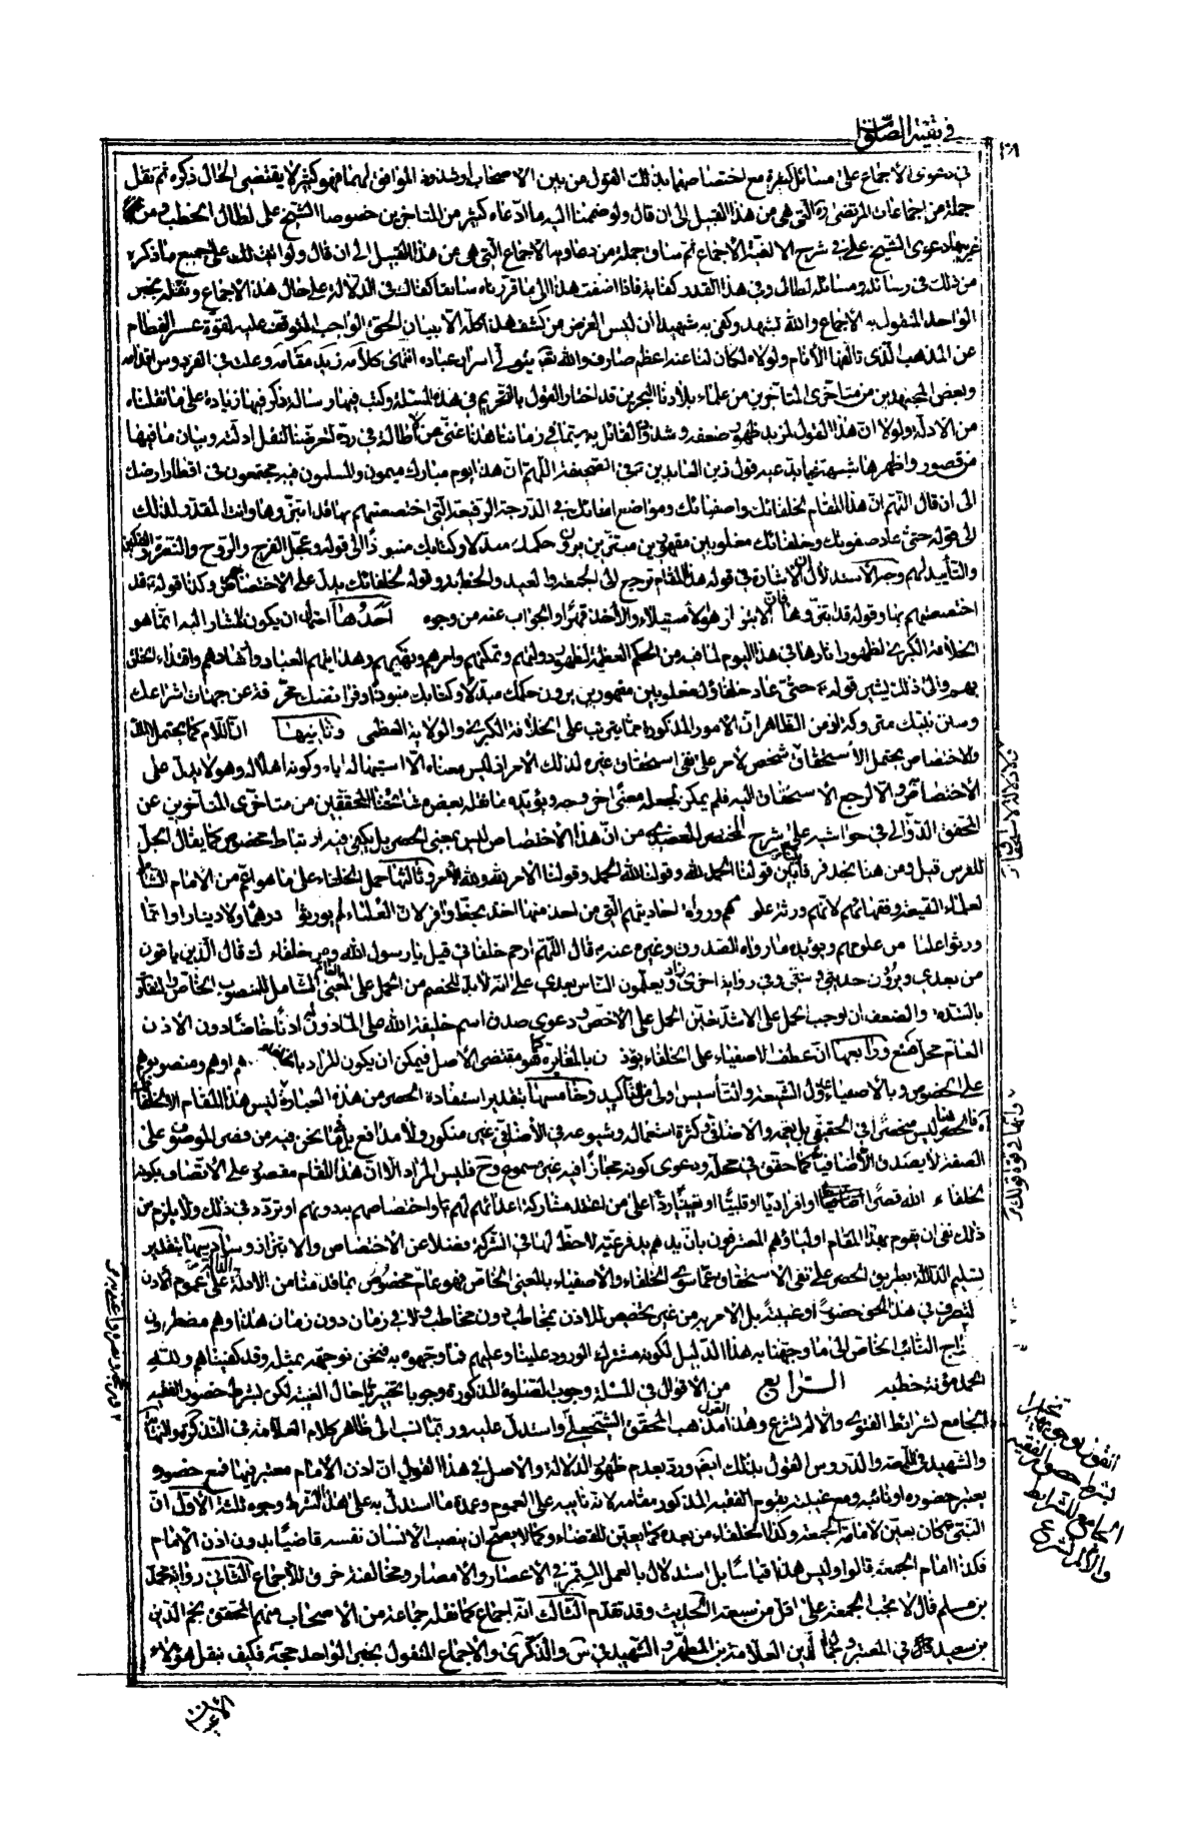 في بقية الصلوات
في دعوى الاجماع على مسائل كثيرة مع اختصاصهما بذلك القول من بين الاصحاب او شذوذ الموافق لهما فهو كثير لا يقتضى الحال ذكره ثم نقل
جملة من اجماعات المرتضى ره التي هي من هذا القبيل الى ان قال ولو ضممنا اليه ما ادعاه كثير من المتاخرين خصوصا الشيخ على لطال الخطب ومن
غريبها دعوى الشيخ على في شرح الالفية الاجماع ثم ساق جملة من دعاويه الاجماع التي هي من هذا القبيل الى ان قال ولو اتيت لك على جميع ما ذكره
من ذلك في رسائله ومسائله لطال وفي هذا القدر كفاية فاذا اضفت هذا الى ما قررناه سابقا كفاك في الدلالة على حال هذا الاجماع ونقله بخبر
الواحد المنقول به الاجماع والله يشهد وكفى به شهيدا ان ليس الغرض من كشف هذا كله الا بيان الحق الواجب المتوقف عليه لقوة عسر الفطام
عن المذهب الذى تالفه الأنام ولولاه لكان لنا عنه اعظم صارف والله تع يتولى اسرار عباده انتهى كلامه زيد مقامه وعلت في الفردوس اقدامه
وبعض المجتهدين من متاخرى المتاخرين من علماء بلادنا البحرين قد اختار القول بالتحريم في هذه المسئلة وكتب فيها رسالة ذكر فيها زيادة على ما نقلناه
من الادلة ولولا ان هذا القول لمزيد ظهور ضعفه وشذوذ القائل به سيما في زماننا هذا غنى عن الاطالة في رده لتعرضنا لنقل ادلته وبيان ما فيها
من قصور واظهرها شبهة نهاية عبد قول زين العابدين ع في الصحيفة اللهم ان هذا يوم مبارك ميمون والمسلمون فيه مجتمعون في اقطار ارضك
الى ان قال اللهم ان هذا المقام لخلفائك واصفيائك ومواضع امنائك في الدرجة الرفيعة التي اختصصتهم بها قد ابتزوها وانت المقدر لذلك
الى قوله حتى عاد صفوتك وخلفائك مغلوبين مقهورين مبتزين يرون حكمك مبدلا وكتابك منبوذا الى قوله وعجل الفرج والروح والنصرة والتمكين
والتأييد لهم وجه الاستدلال ان الاشارة في قوله هذا المقام ترجع الى الجمعة والعيد والخطابة وقوله لخلفائك يدل على الاختصاص وكذا قوله قد
اختصصتهم بها وقوله قد ابتزوها فان الابتزاز هو الاستيلاء والأخذ قهرا والجواب عنه من وجوه احدها احتمال ان يكون المشار اليه انما هو
الخلافة الكبرى لظهور اثارها في هذا اليوم لما فيه من الحكم العظيمة لظهور دولتهم وتمكنهم وامرهم ونهيهم وهدايتهم العباد وارشادهم واقتداء الخلق
بهم والى ذلك يشير قوله ع حتى عاد خلفاؤك مغلوبين مقهورين يرون حكمك مبدلا وكتابك منبوذا وفرائضك محرفة عن جهات اشراعك
وسنن نبيك متروكة اذ من الظاهر ان الامور المذكورة مما يترتب على الخلافة الكبرى والولاية العظمى وثانيها ان اللام كما يحتمل الملك
والاختصاص يحتمل الأستحقاق شخص لأمر على نفى استحقاق غيره لذلك الأمر اذ ليس معناه الا استيهاله اياه وكونه اهلا له وهو لا يدل على
الأختصاص والا لرجع الاستحقاق اليه فلم يمكن لجعله معنى اخر وجه ويؤيده ما نقله بعض مشايخنا المحققين من متاخرى المتاخرين عن
المحقق الدوانى في حواشيه على شرح المختصر العضدى من ان هذا الأختصاص ليس بمعنى الحصر بل يكفى فيه ارتباط مخصوص كما يقال الجل
للفرس قيل ومن هنا نجد فرقا بين قولنا الحمد لله وقولنا لله الحمد وقولنا الأمر لله ولله الأمر وثالثها حمل الخلفاء على ما هو اعم من الامام الشامل
لعلماء الشيعة وفقهائهم لانهم ورثة علومهم ورواة احاديثهم التي من اخذ منها اخذ بحظ وافر لان العلماء لم يورثوا درهما ولا دينارا وانما
ورثوا علما من علومهم ويؤيده ما رواه الصدوق وغيره عنه ص قال اللهم ارحم خلفائي قيل يا رسول الله ومن خلفاءك قال الذين ياتون
من بعدي ويروون حديثي وسنتي وفي رواية اخرى زاد ويعلمون الناس بعدي على انه لابد للخصم من الحمل على المعنى العام الشامل للمنصوب الخاص
بالنسبة والضعف ان وجب الحمل على الاشد فتعين الحمل على الأخص ودعوى صدق اسم خليفة الله على الماذون اذنا خاصا دون الاذن
العام محل منع ورابعها ان عطف الاصفياء على الخلفاء يؤذن بالمغايرة كما هو مقتضى الأصل فيمكن ان يكون المراد بالخلفاء هم او هم ومنصوبوهم
على الخصوص وبالاصفياء عدول الشيعة والتأسيس اولى من التأكيد وخامسها بتقدير استفادة الحصر من هذه العبارة ليس هذا المقام الا لخلفائك
آه فالحصر ليس منحصرا في الحقيقي بل يعمه والاضافي لكثرة استعماله وشيوعه في الأضافي غير منكور ولا مدافع بل فيما نحن فيه من قصر الموصوف على
الصفة لا يصدق الأضافيا كما حقق في محله ودعوى كونه مجازا فيه غير مسموع وح فليس المراد الا ان هذا المقام مقصور على الاتصاف بكونه
لخلفاء الله قصرا اضافيا افراديا او قلبيا او تعيينيا ردا على من اعتقد مشاركة اعدائهم لهم او اختصاصهم به دونهم او تردد في ذلك ولا يلزم من
ذلك نفى ان يقوم بهذا المقام اولياؤهم المعترفون بان يدهم يد فرعية لاحظ لها في الشركة فضلا عن الاختصاص والابتزاز وسادسها بتقدير
تسليم الدلالة بطريق الحصر على نفى الاستحقاق عما سوى الخلفاء والاصفياء بالمعنى الخاص فهو عام مخصوص بما قدمنا من الادلة الدالة على عموم الأذن
لتصرف في هذا الحق حضورا وغيبة بل الامر به من غير تخصيص للاذن بمخاطب دون مخاطب ولا في زمان دون زمان هذا وهم مضطرون
الى اخراج النائب الخاص الى ما وجهنا به هذا الدليل لكونه مشترك الورود علينا وعليهم فما وجهوه به فنحن نوجهه بمثله وقد كفيناهم ولله
الحمد مؤنة خطبه الرابع من الاقوال في المسئلة وجوب الصلوة المذكورة وجوبا تخييريا حال الغيبة لكن بشرط حضور الفقيه
الجامع لشرائط الفتوى والا لم تشرع وهذا القول مذهب المحقق الشيخ على واستدل عليه وربما نسب الى ظاهر كلام العلامة في التذكرة والنهاية
والشهيد في اللمعة والدروس القول بذلك ايضا ورد بعدم ظهور الدلالة والاصل في هذا القول ان اذن الامام معتبر فيها فمع حضوره
يعتبر حضوره او نائبه ومع غيبته يقوم الفقيه المذكور مقامه لانه نايبه على العموم وعمدة ما استدل به على هذا الشرط وجوه ثلثة الاول ان
النبي ص كان يعين لامامة الجمعة وكذا الخلفاء من بعده كما يعين للقضاء وكما لا يصح ان ينصب الانسان نفسه قاضيا بدون اذن الامام
فكذا امام الجمعة قالوا وليس هذا قياسا بل استدلال بالعمل المستمر في الاعصار والامصار ومخالفته خرق للأجماع الثانى رواية محمد
بن مسلم قال لا تجب الجمعة على اقل من سبعة الحديث وقد تقدم الثالث انه اجماع كما نقله جماعة من الاصحاب منهم المحقق نجم الدين
بن سعيد في المعتبر وجمال الدين العلامة بن المطهر والشهيد في س والذكرى والاجماع المنقول بخبر الواحد حجة فكيف بنقل هؤلاء
القول بوجوبها تخييرا
بشرط حضور الفقيه
الجامع للشرايط
والا لم تشرع